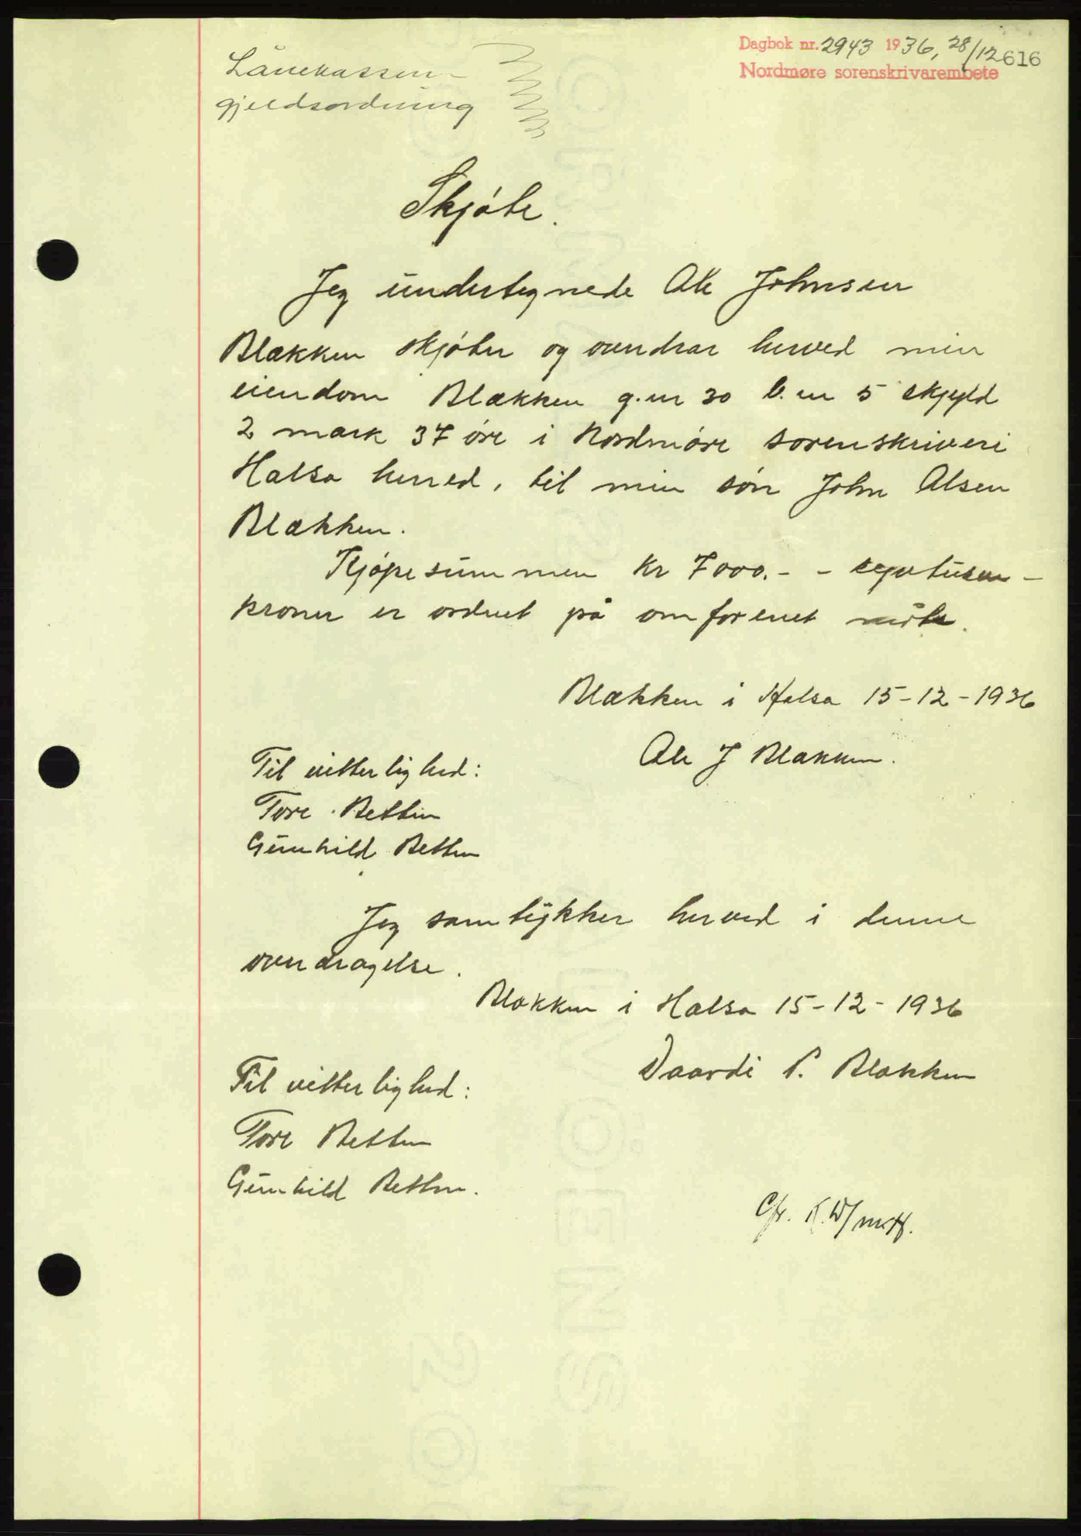 Dagbok nr. 2943 1936, 28/12 616
Nordmøre sorenskrivarembete
Lånekassen
gjeldsordning
Skjöte.
Jeg undertegnede Ole Johnsen
Blækken skjöter og overdrar herved min
eiendom Blækken g.nr 30 b.nr 5 skyld
2 mark 37 öre i Nordmöre sorenskriveri
Halsa herred, til min sön John Olsen
Blækken.
Kjöpesummen kr 7000.- - syvtusen -
kroner er ordnet på omforenet måte.
Blækken i Halsa 15-12-1936
Ole J Blækken.
Til vitterlighed:
Tore Betten
Gunhild Betten
Jeg samtykker herved i denne
overdragelse.
Blækken i Halsa 15-12-1936
Til vitterlighed:
Blækken
Tore Betten
Gunhild Betten.